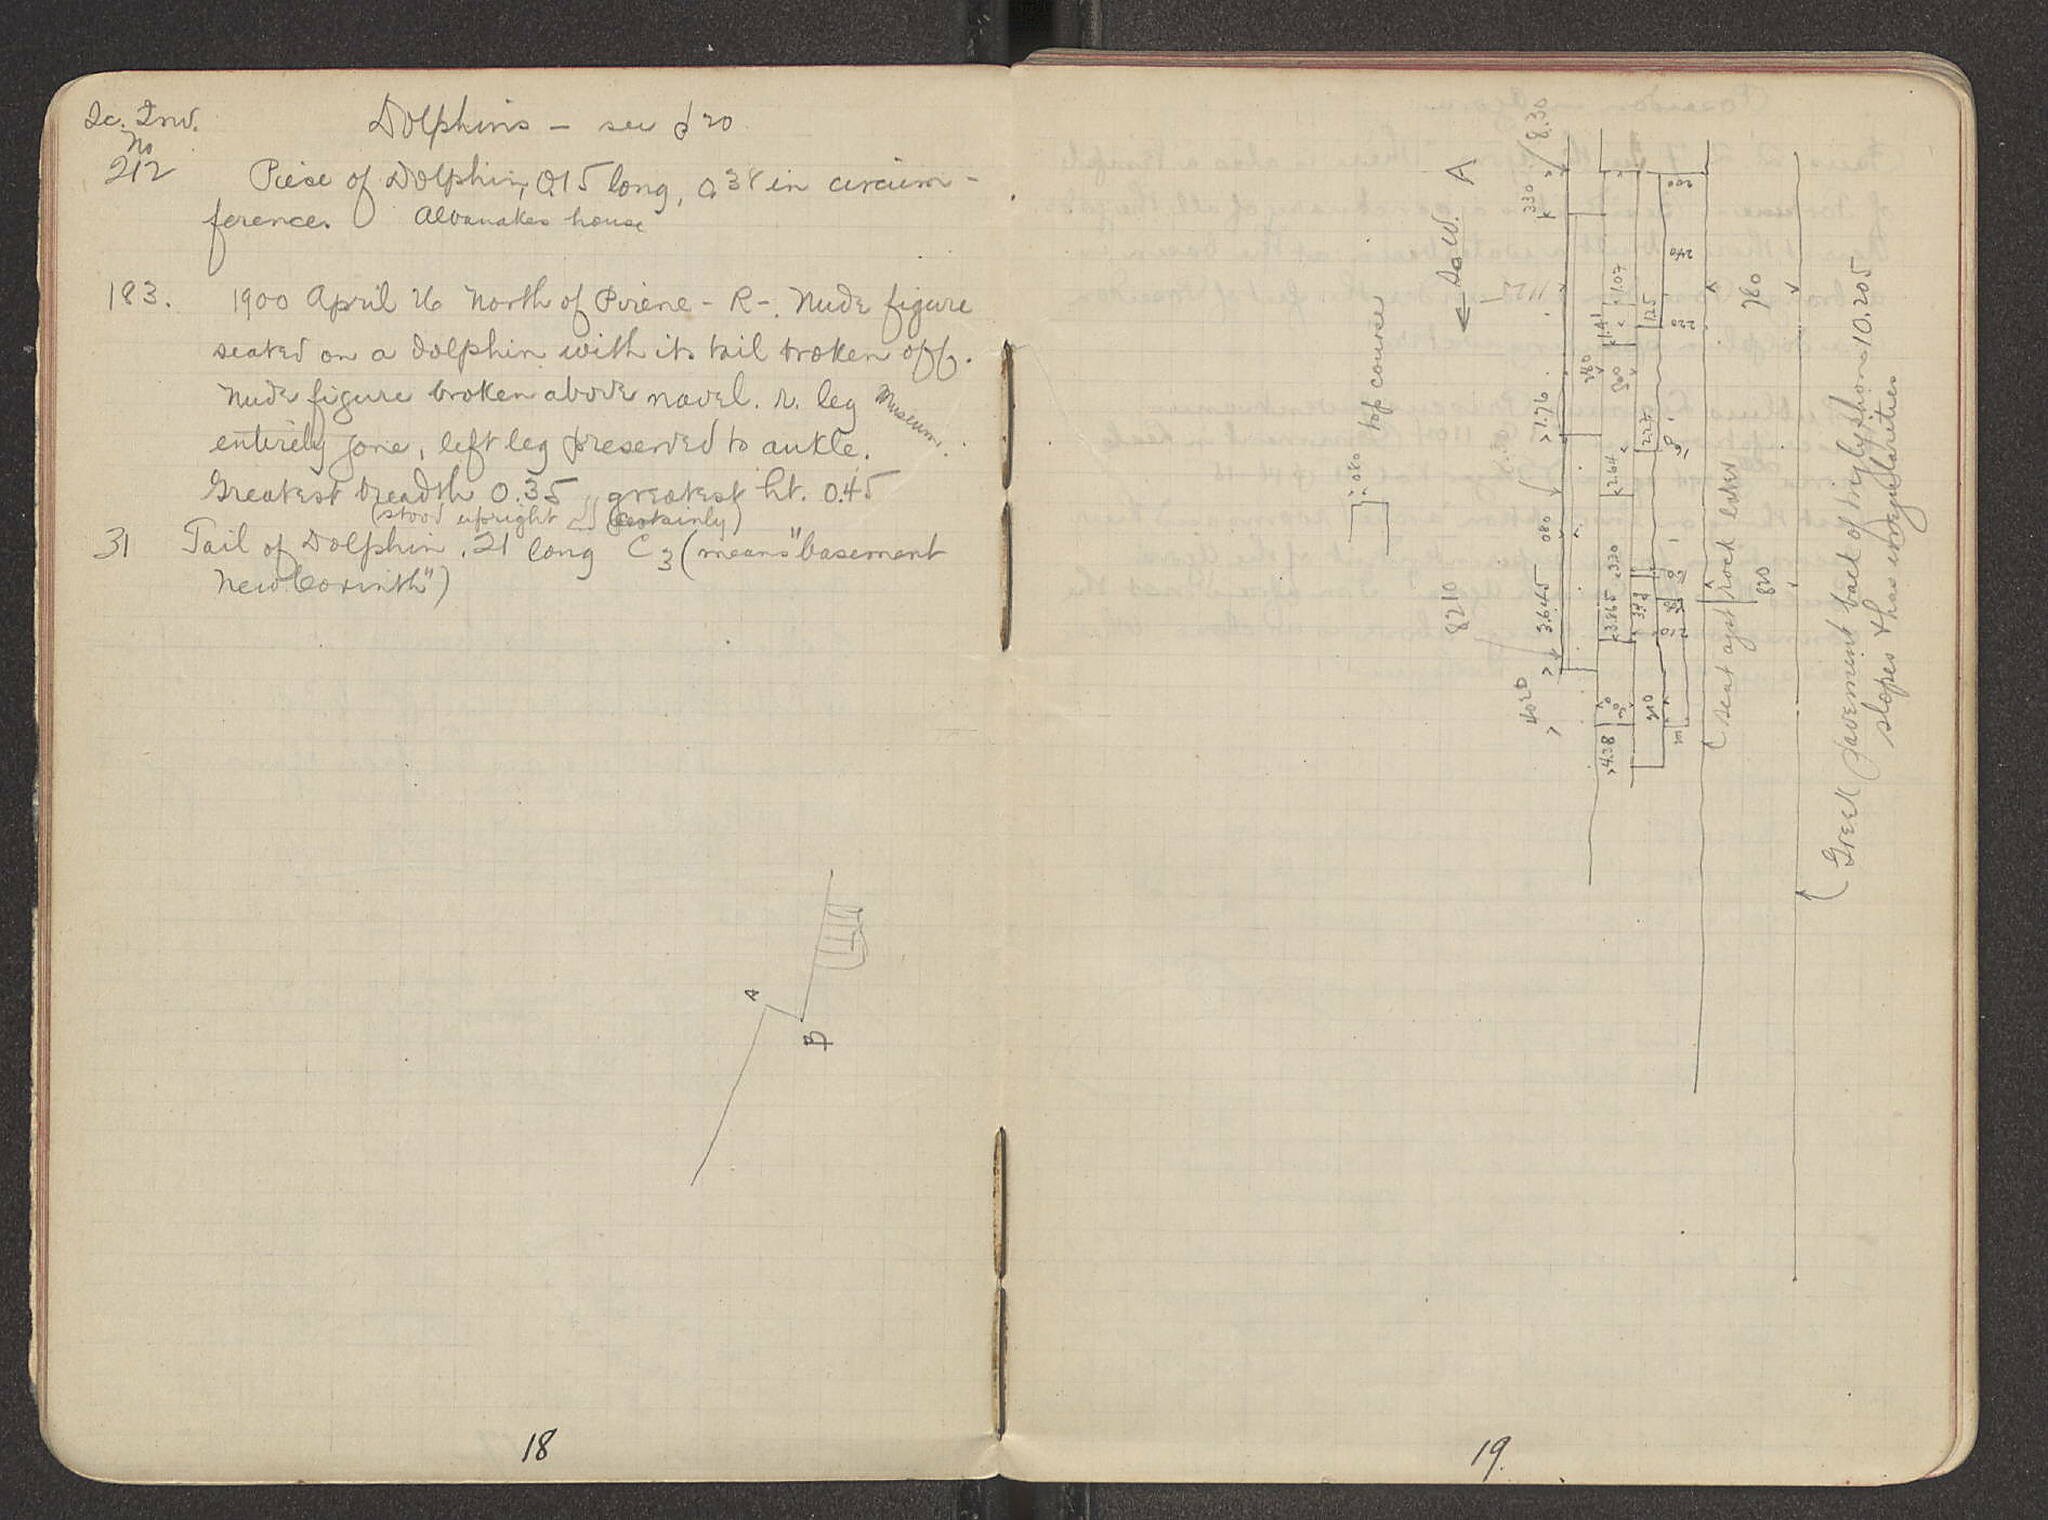 Sc. Inv.
No
Dolphins - see p 20
212 Piese of Dolphin, 0.15 long, 0.38 in circum-
ference. Alvanakes house
183. 1900 April 26 North of Pirene - R-. Nude figure
seated on a dolphin with its tail broken off.
Nude figure broken above navel. r. leg Museum.
entirely gone, left leg preserved to ankle.
Greatest breadth 0.35 greatest ht. 0.45
(stood upright certainly)
31 Tail of Dolphin .21 long C3 (means "basement
New Corinth")
A
B
18
A
So. W.
8.30
330
top course
.080
1.76
080
3.645
8210
4020
1.07
1.41
360
500
2.64
.320
3.865
4.38
1.25
2.27
332
310
200
240
220
780
820
(seat agst rock
(Greek pavement back of
10.205
slopes & has irregularities
19.